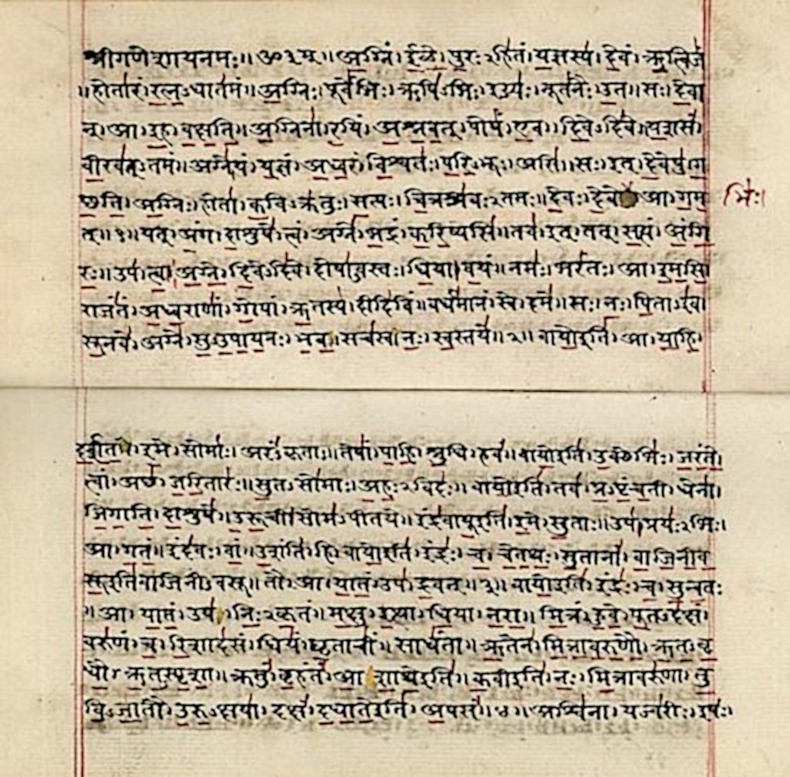 श्रीगणेशायनमः॥ॐ३म्॥अग्निं।ईळे।पुरःऽहितं।यज्ञस्य।देवं।ऋत्विजं
॥होतारं।रत्नऽधातमं॥अग्निः।पूर्वेभिः।ऋषिऽभिः।ईड्यः।नूतनैः।उत॥सः।देवा
न्।आ।इह।वक्षति॥अग्निना।रयिं।अश्नवत्।पोषं।एव।दिवेऽदिवे॥यशसं
वीरवत्ऽतमं॥अग्ने।यं।यज्ञं।अध्वरं।विश्वतः।परिऽभूः।असि॥सः।इत्।देवेषु।ग
छति।अग्निः।होता।कविऽक्रतुः।सत्यः।चित्रश्रवःऽतमः॥देवः।देवे आ।गम
भिः।
त्॥१॥यत्।अंग।दाशुषे।त्वं।अग्ने।भद्रं।करिष्यसि॥तव।इत्।तत्।सत्यं।अंगि
रः॥उप।त्वा।अग्ने।दिवेऽदिवे।दोषाऽवस्तः।धिया।वयं॥नमः।भरंतः।आ।इमसि
राजंतं।अध्वराणां।गोपां।ऋतस्य।दीदिविं॥वर्धमानं।स्वे।दमे॥सः।नः।पिताऽइव।
सूनवे।अग्ने।सुऽउपायनः।भव॥सचस्व।नः।स्वस्तये॥२॥वायोइति।आ।याहि।
दर्शत।इमे।सोमाः।अरंऽकृताः॥तेषां।पाहि।श्रुधि।हवं॥वायोइति।उक्थेभिः।जरंते।
त्वां।अछ।जरितारः॥सुतऽसोमाः।अहःऽविदः॥वायोइति।तव।प्रऽपृंचती।धेना।
जिगाति।दाशुषे॥उरूची।सोमऽपीतये॥इंद्रवायूइति।इमे।सुताः॥उप।प्रयःऽभिः।
आ।गतं॥इंदवः।वां।उशंति।हि॥वायोइति।इंद्रः।च।चेतथः।सुतानां।वाजिनीव
सूइतिवाजिनीऽवसू॥तौ।आ।यातं।उप।द्रवत्॥३॥वायोइति।इंद्रः।च।सुन्वतः
॥आ।यातं।उप।निःऽकृतं॥मक्षु।इत्था।धिया।नरा॥मित्रं।हुवे।पूतऽदक्षं।
वरुणं।च।रिशादसं॥धियं।घृताचीं।साधंता॥ऋतेन।मित्रावरुणौ।ऋतऽवृ
धौ।ऋतऽस्पृशा॥क्रतुं।बृहंतं।आशाथेइति॥कवीइति।नः।मित्रावरुणा।तु
विऽजातौ।उरुऽक्षया॥दक्षं।दधातेइति।अपसं॥४॥अश्विना।यज्वरीः।इषः।